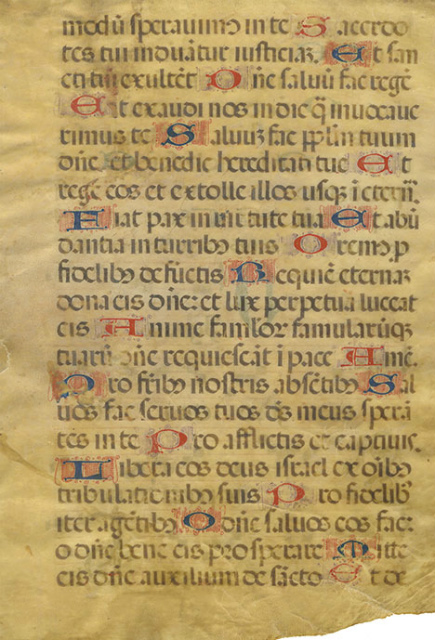 modũ sperauim9 in te S acerdo
tes tui induãtur iusticiaz. Et san
cti tui exultẽt O ñe saluũ fac regẽ
Et exaudi nos in die q̃ inuocaue
rimus te Saluuz fac pp̃lm tuum
dñe. et benedic hereditati tue Et
rege eos et extolle illos usqz ĩ etern̄.
Fiat pax in uirtute tua Et abũ
dantia in turrib9 tuis Orem9 p
fidelib9 defũctis Requiẽ eternaz
dona eis dñe: et lux perpetua luceat
eis Anime famlor famularũqz
tuarũ dñe requiescãt ĩ pace Amẽ.
Pro frib9 nostris absẽtib9 Sal
uos fac seruos tuos dẽs meus sperã
tes in te Pro afflictis et captiuis.
Libera eos deus israel ex oĩb9
tribulationib9 suis Pro fidelib9
iter agẽtib9 O dñe saluos eos fac:
o dñe bene eis prosperare Mitte
eis dñe auxilium de sãcto Et de